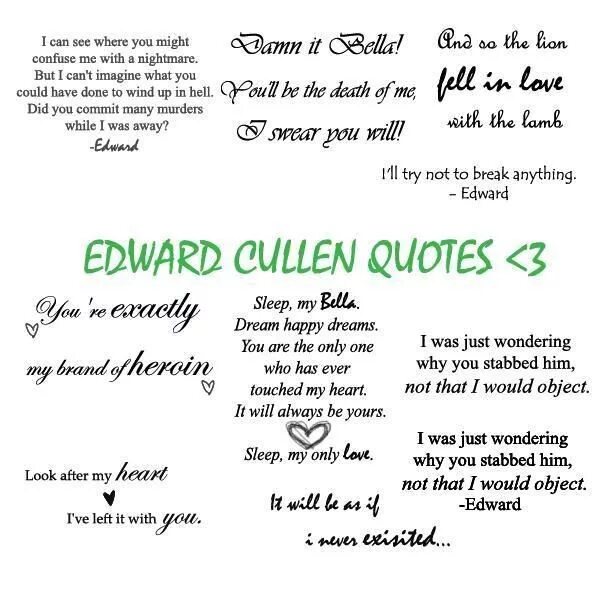 I can see where you might
confuse me with a nightmare.
But I can't imagine what you
could have done to wind up in hell.
Did you commit many murders
while I was away?
-Edward
Damn it Bella!
You'll be the death of me,
I swear you will!
And so the lion
fell in love
with the lamb
I'll try not to break anything.
- Edward
EDWARD CULLEN QUOTES <3
You're exactly
my brand of heroin
Sleep, my Bella.
Dream happy dreams.
You are the only one
who has ever
touched my heart.
It will always be yours.
Sleep, my only love.
I was just wondering
why you stabbed him,
not that I would object.
I was just wondering
why you stabbed him,
not that I would object.
-Edward
Look after my heart
I've left it with you.
It will be as if
i never exisited...